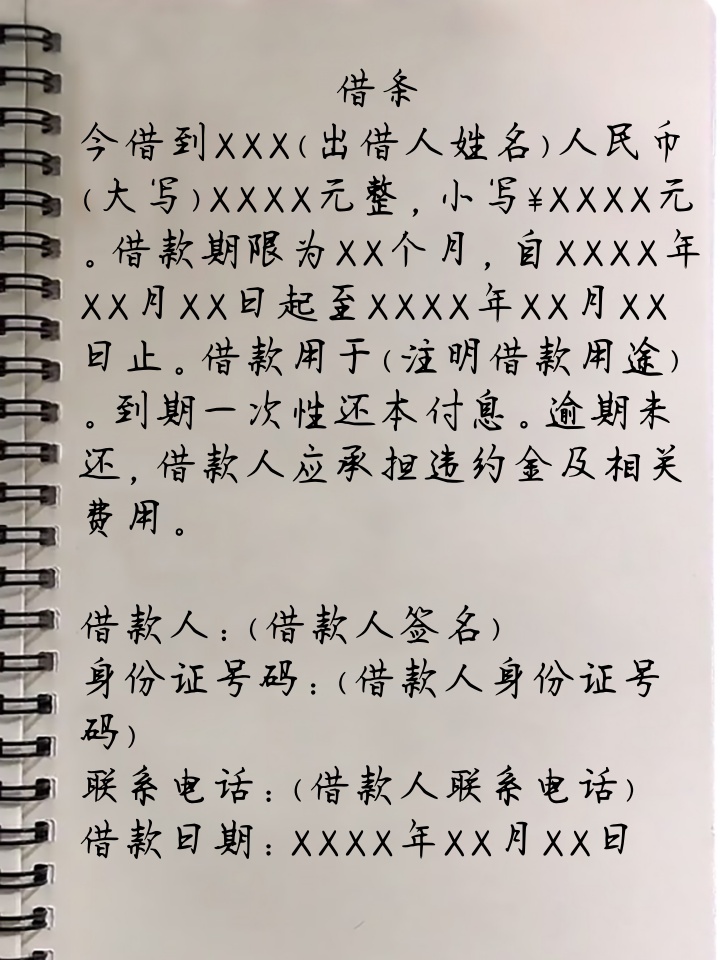 借条
今借到XXX(出借人姓名)人民币
(大写)XXXX元整,小写¥XXXX元
。借款期限为XX个月,自XXXX年
XX月XX日起至XXXX年XX月XX
日止。借款用于(注明借款用途)
。到期一次性还本付息。逾期未
还,借款人应承担违约金及相关
费用。
借款人:(借款人签名)
身份证号码:(借款人身份证号
码)
联系电话:(借款人联系电话)
借款日期:XXXX年XX月XX日